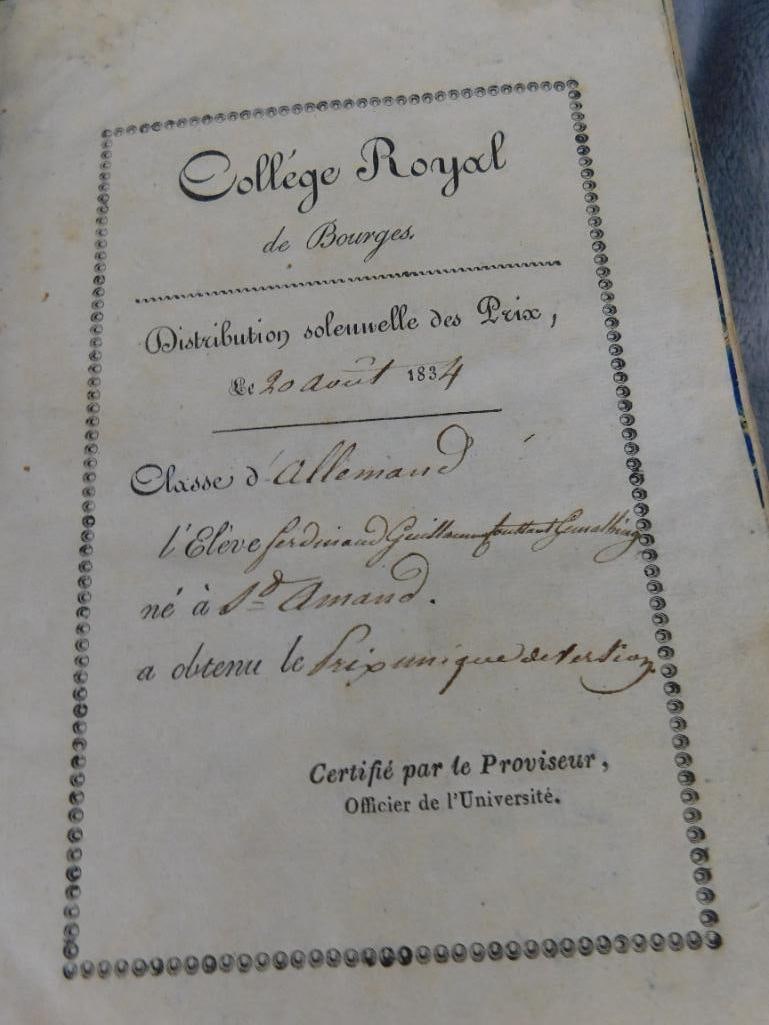 Collége Royal
de Bourges.
Distribution solennelle des Prix,
Le 20 août 1834
Classe d'Allemand
l'Elève ferdinand Guillaume
né à St Amand.
a obtenu le Prix unique de version
Certifié par le Proviseur,
Officier de l'Université.